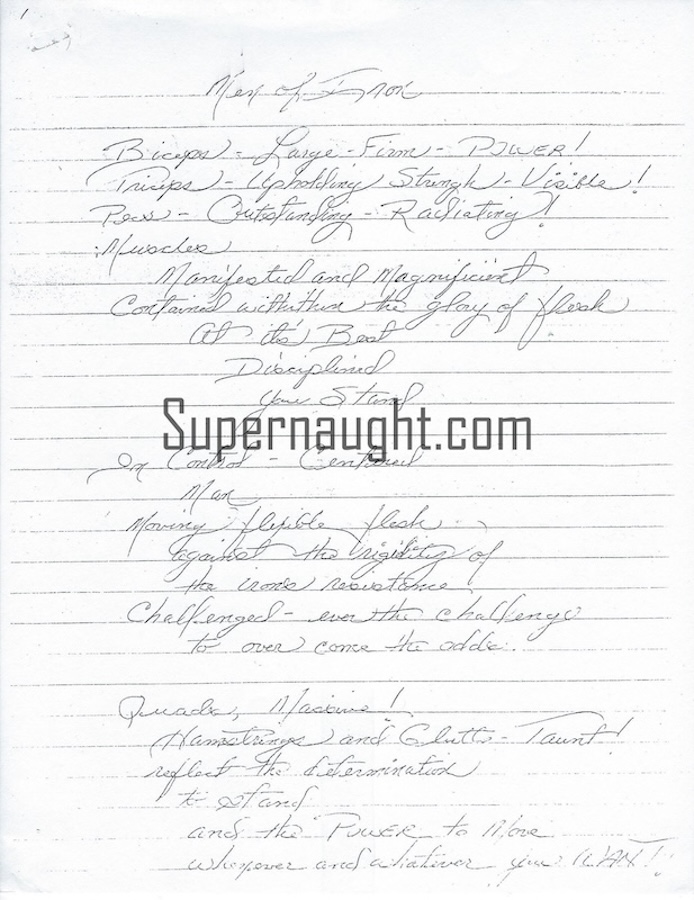 Men of Iron
Biceps - Large - Firm - POWER!
Triceps - Upholding Strengh - Visible!
Pecs - Outstanding - Radiating!
Muscles
Manifested and Magnificient
Contained withithin the glory of flesh
At its Best
Disciplined
you Stand
Supernaught.com
In Control - Centered
Man
Moving flexible flesh
against the rigidity of
the irons resistance
Challenged - ever the challenge
to over come the odds.
Quads, Massive!
Hamstrings and Glutts - Taunt!
reflect the determination
to stand
and the POWER to Move
whenever and whatever you WANT!